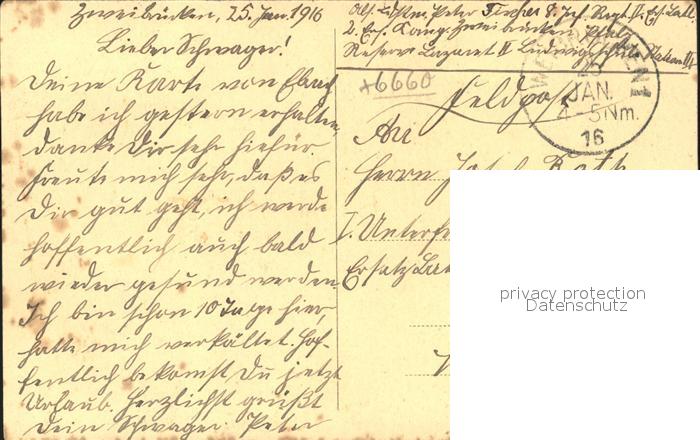 Zweibrücken, 25. Jan. 1916
Lieber Schwager!
Deine Karte von
habe ich gestern erhalten,
danke Dir sehr hiefür
freute mich sehr, daß es
Dir gut geht, ich werde
hoffentlich auch bald
wieder gesund werden.
Ich bin schon 10 Tage hier,
hatte mich verkältet. Hof-
fentlich bekomst Du jetzt
Urlaub. Herzlichst grüßt
Dein Schwager Peter
Peter Fischer 8. Inf. Regt.
2. Zweibrücken Pfalz
Reserv Lazaret II Ludwigschule
+6660
Feldpost
JAN.
4-5 Nm.
16
An
Herrn Josef Roth
I. Unterf
Ersatz Bat
privacy protection
Datenschutz